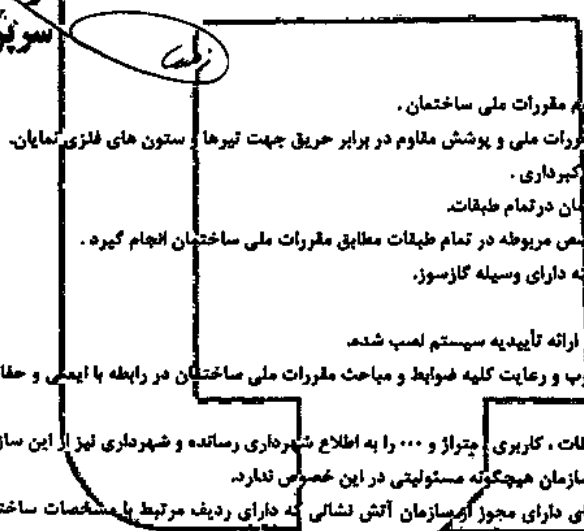 مقررات ملی ساختمان .
مقررات ملی و پوشش مقاوم در برابر حریق جهت تیرها و ستون های فلزی نمایان.
درتمام طبقات.
مربوطه در تمام طبقات مطابق مقررات ملی ساختمان انجام گیرد .
دارای وسیله گازسوز.
ارائه تأییدیه سیستم نصب شده.
و رعایت کلیه ضوابط و مباحث مقررات ملی ساختمان در رابطه با ایمنی و
، کاربری ، متراژ و ... را به اطلاع شهرداری رسانده و شهرداری نیز از این
سازمان هیچگونه مسئولیتی در این خصوص ندارد.
دارای مجوز از سازمان آتش نشانی که دارای ردیف مرتبط با مشخصات